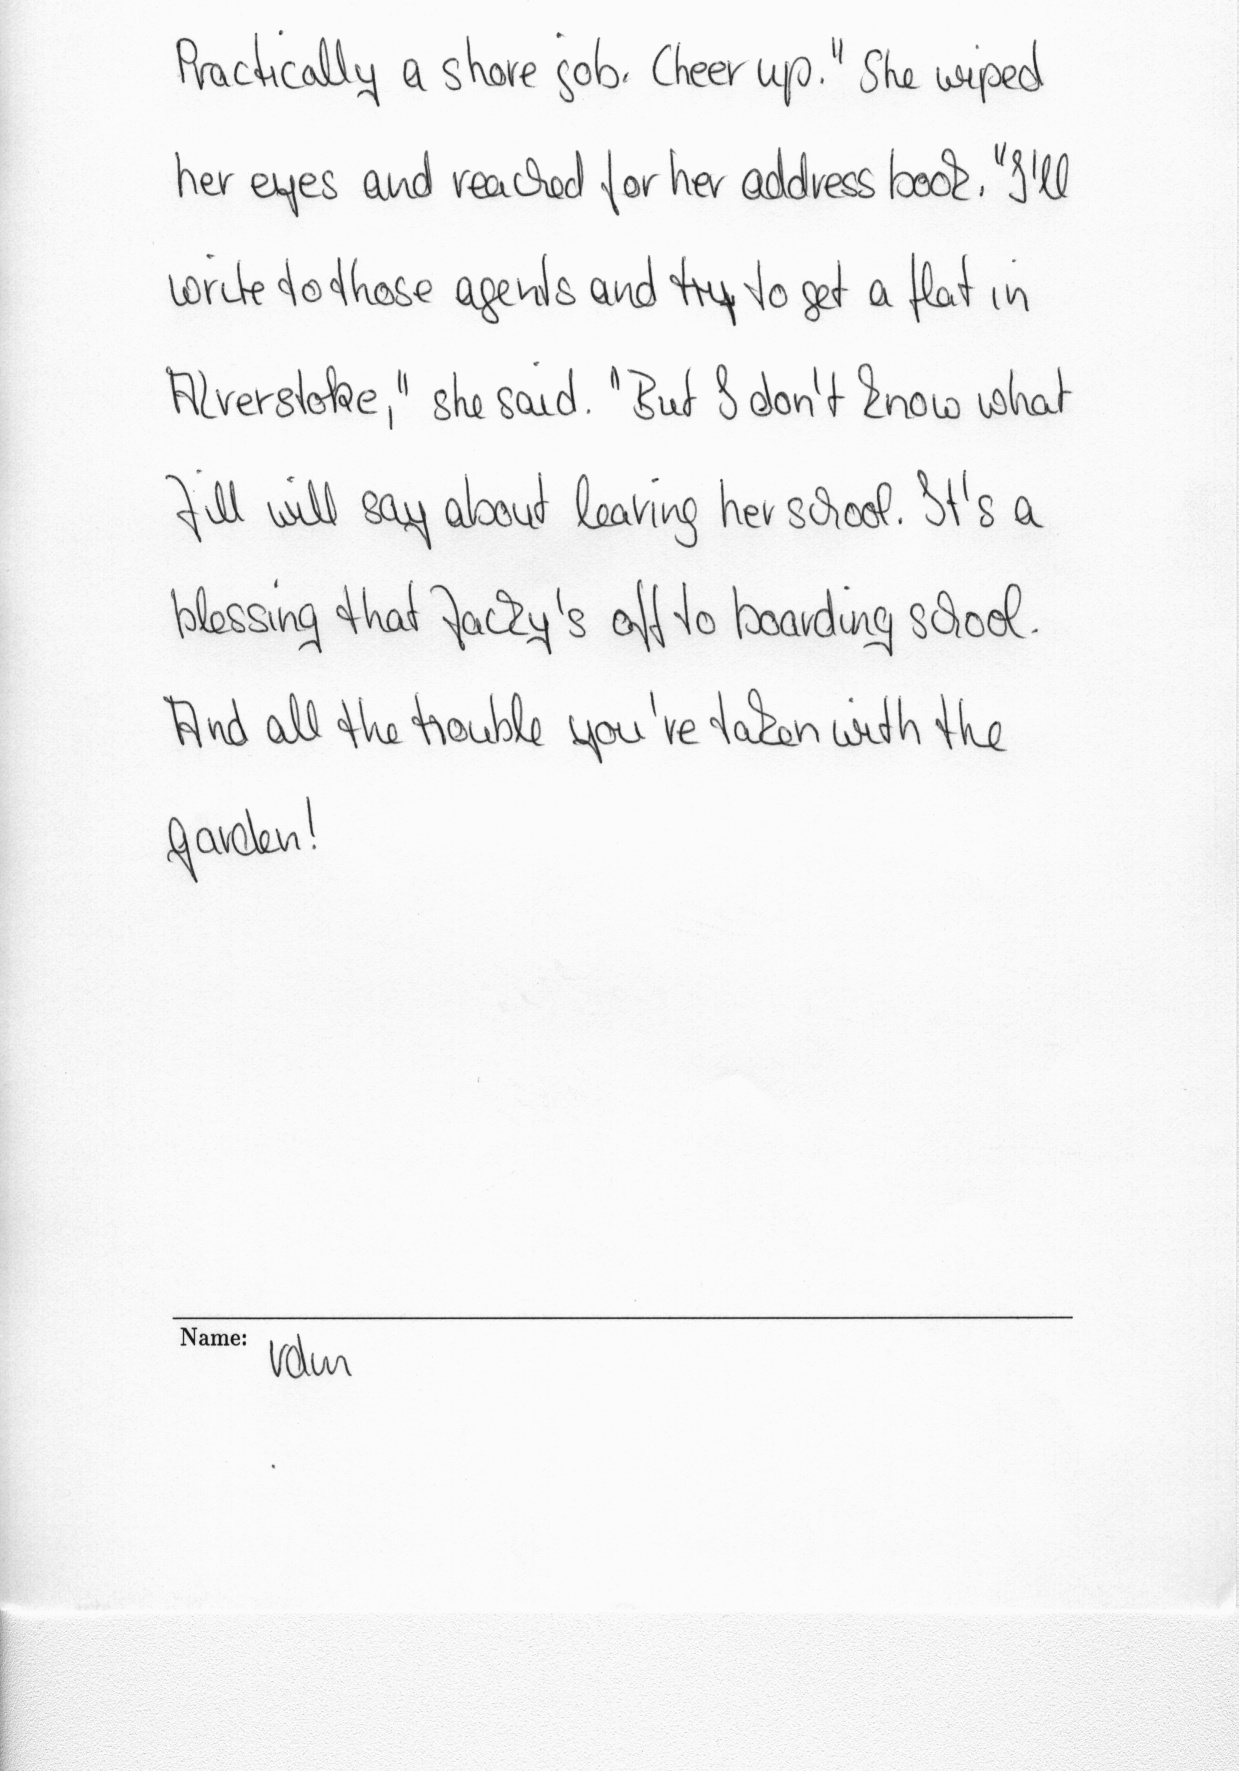 Practically a shore job. Cheer up." She wiped
her eyes and reached for her address book. "I'll
write to those agents and try to get a flat in
Alverstoke," she said. "But I don't know what
Jill will say about leaving her school. It's a
blessing that Jacky's off to boarding school.
And all the trouble you've taken with the
garden!
Name: